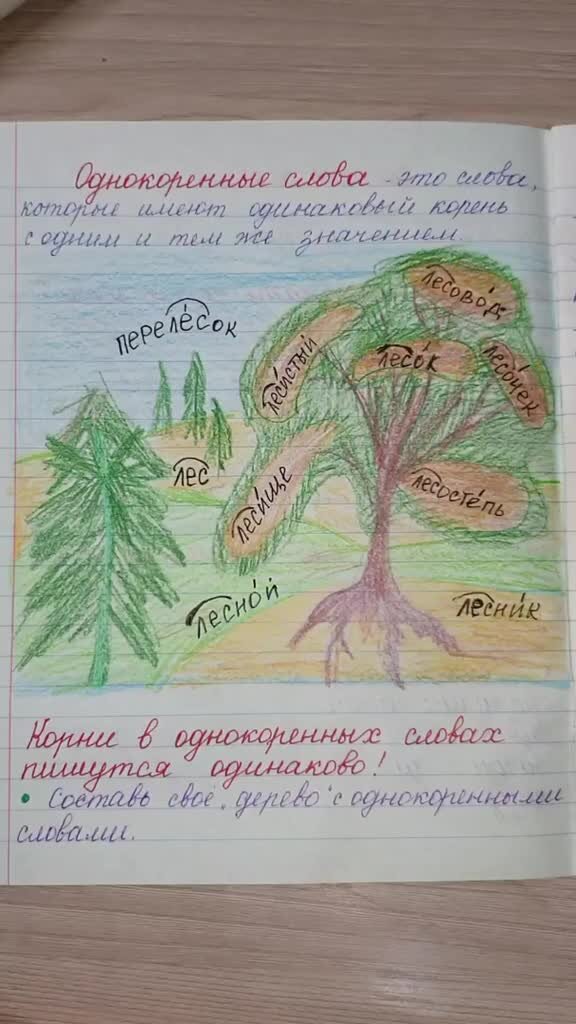 Однокоренные слова - это слова,
которые имеют одинаковый корень
с одним и тем же значением.
лесово́д
переле́сок
леси́стый
лесо́к
лесо́чек
лес
леси́ще
лесосте́пь
лесно́й
лесни́к
Корни в однокоренных словах
пишутся одинаково!
• Составь своё „дерево" с однокоренными
словами.